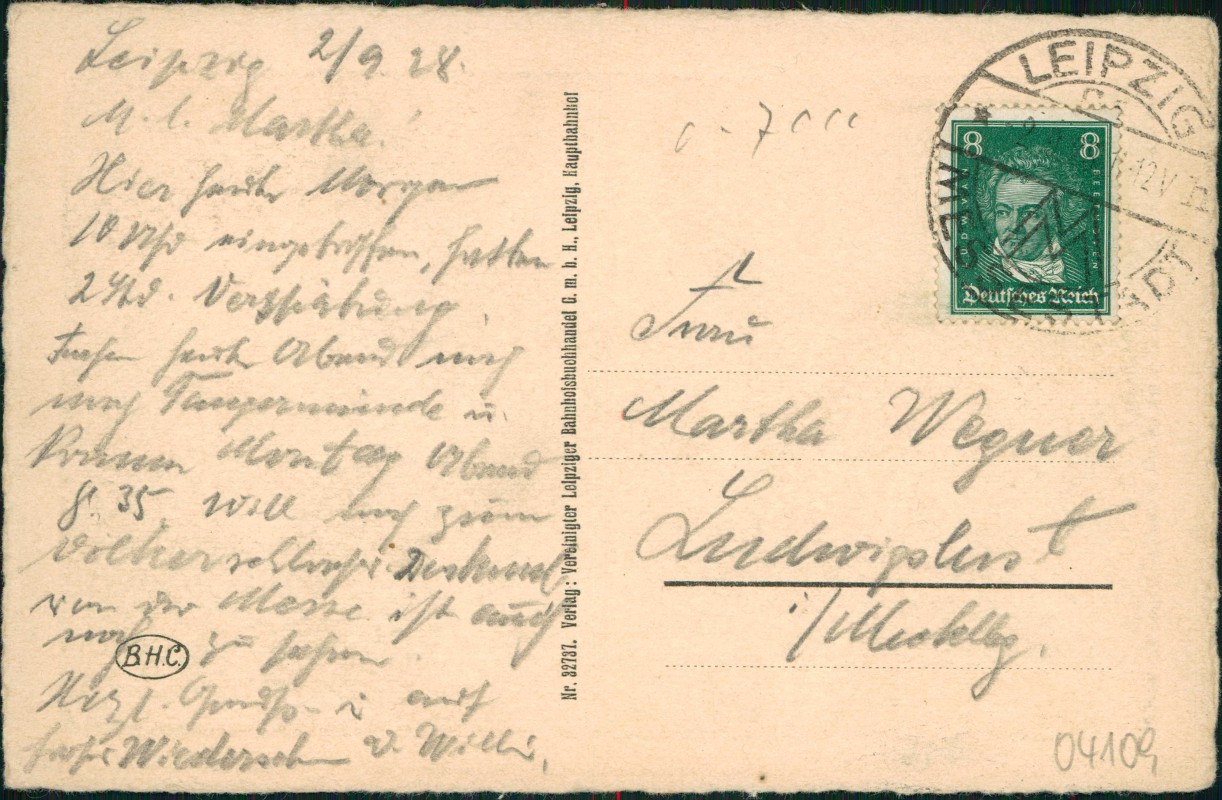 Leipzig 2/9. 28.
M. l. Martha!
Hier heute Morgen
10 Uhr eingetroffen, hatten
2 Std. Verspätung
Fahre heute Abend noch
nach Tangermünde u.
komme Montag Abend
8.35. Will noch zum
Völkerschlacht Denkmal
von der Messe ist auch
noch zu sehen.
Herzl. Gruß u. auf
frohes Wiedersehn D. Willi.
B.H.C.
Nr. 32737. Verlag: Vereinigter Leipziger Bahnhofsbuchhandel G. m. b. H., Leipzig, Hauptbahnhof
LEIPZIG
WESTSTADT
12 V
8 8
LUDWIG VAN BEETHOVEN
Deutsches Reich
Frau
Martha Wegner
Ludwigslust
i/Mecklbg.
04109